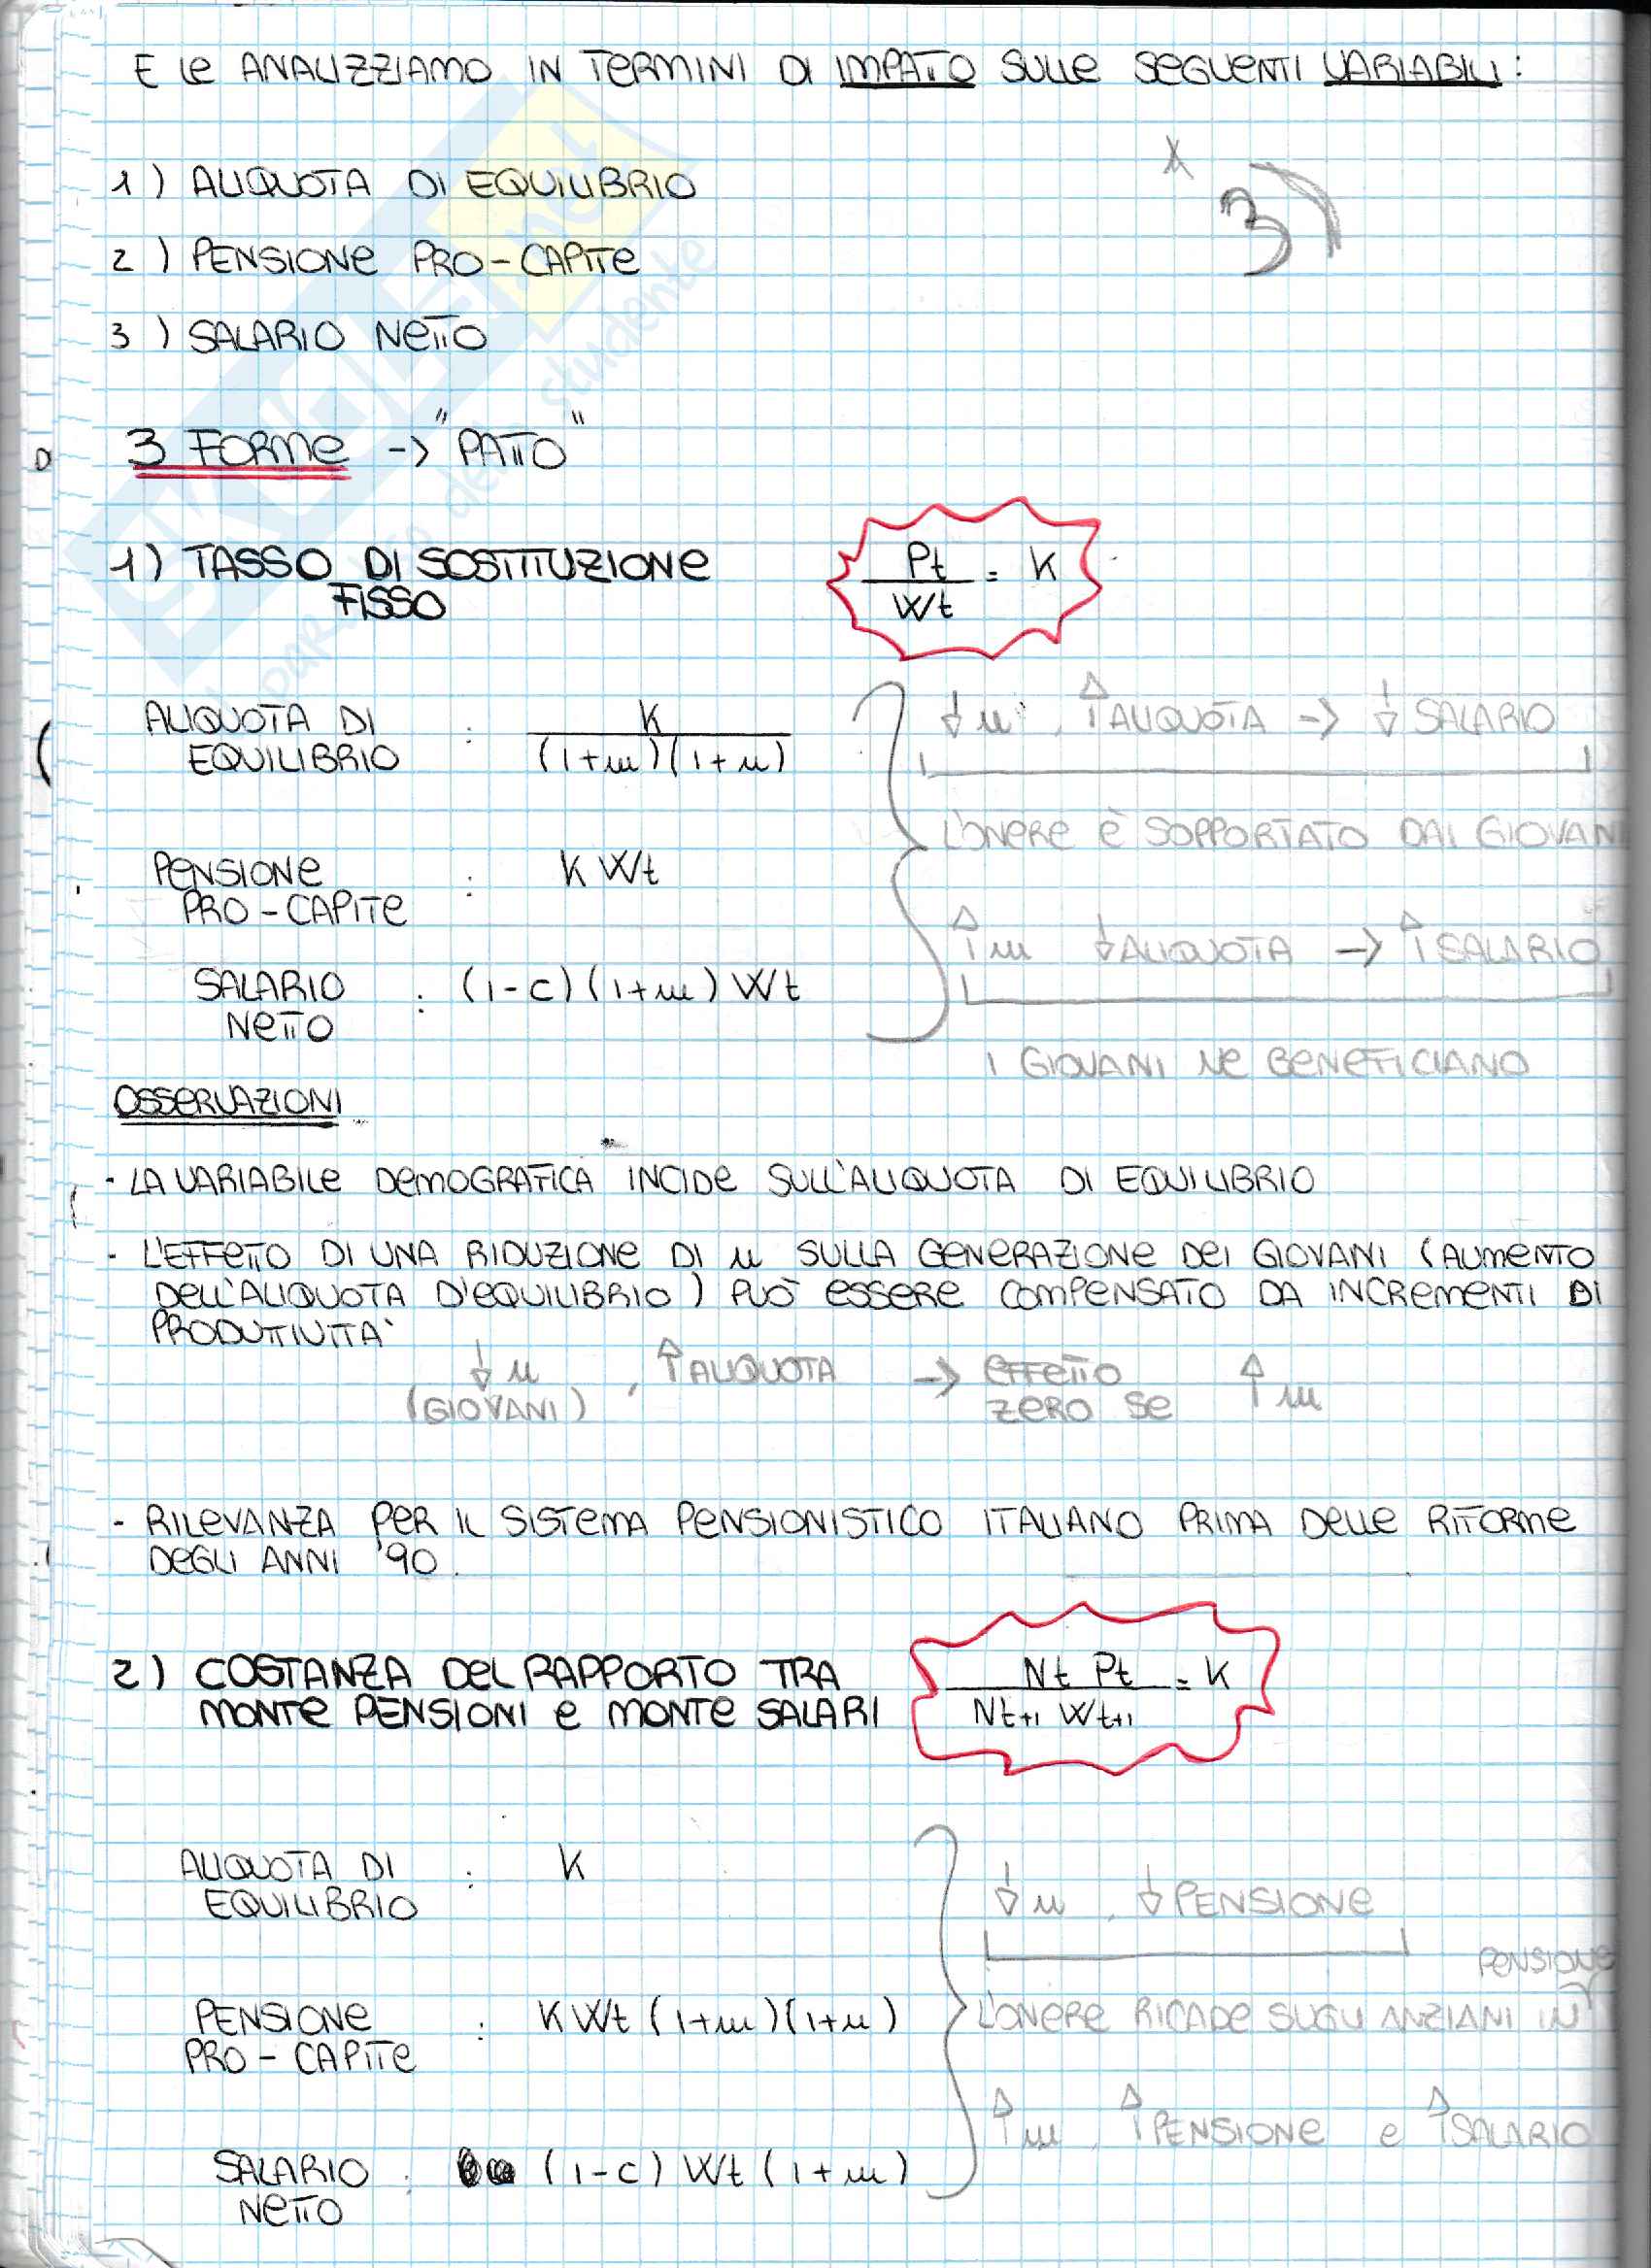 E le ANALIZZIAMO IN TERMINI DI IMPATTO SULLE SEGUENTI VARIABILI:
1) ALIQUOTA DI EQUILIBRIO
3)
2) PENSIONE PRO-CAPITE
3) SALARIO NETTO
3 FORME -> "PATTO"
1) TASSO DI SOSTITUZIONE
FISSO
Pt / Wt = K
ALIQUOTA DI
EQUILIBRIO : K / (1+m)(1+n)
↓n, ↑ALIQUOTA -> ↓SALARIO
L'ONERE È SOPPORTATO DAI GIOVAN
PENSIONE
PRO-CAPITE : K Wt
↑m ↓ALIQUOTA -> ↑SALARIO
SALARIO
NETTO : (1-c)(1+m) Wt
I GIOVANI NE BENEFICIANO
OSSERVAZIONI
- LA VARIABILE DEMOGRAFICA INCIDE SULL'ALIQUOTA DI EQUILIBRIO
- L'EFFETTO DI UNA RIDUZIONE DI n SULLA GENERAZIONE DEI GIOVANI (AUMENTO
DELL'ALIQUOTA D'EQUILIBRIO) PUÒ ESSERE COMPENSATO DA INCREMENTI DI
PRODUTTIVITA'
↓n , ↑ALIQUOTA -> EFFETTO ↑m
(GIOVANI) ZERO SE
- RILEVANZA PER IL SISTEMA PENSIONISTICO ITALIANO PRIMA DELLE RIFORME
DEGLI ANNI '90.
2) COSTANZA DEL RAPPORTO TRA
MONTE PENSIONI e MONTE SALARI
Nt Pt / Nt+1 Wt+1 = K
ALIQUOTA DI
EQUILIBRIO : K
↓n, ↓PENSIONE
PENSIONE
PENSIONE
PRO-CAPITE : K Wt (1+m)(1+n)
L'ONERE RICADE SUGLI ANZIANI IN
↑m, ↑PENSIONE e ↑SALARIO
SALARIO
NETTO : (1-c) Wt (1+m)